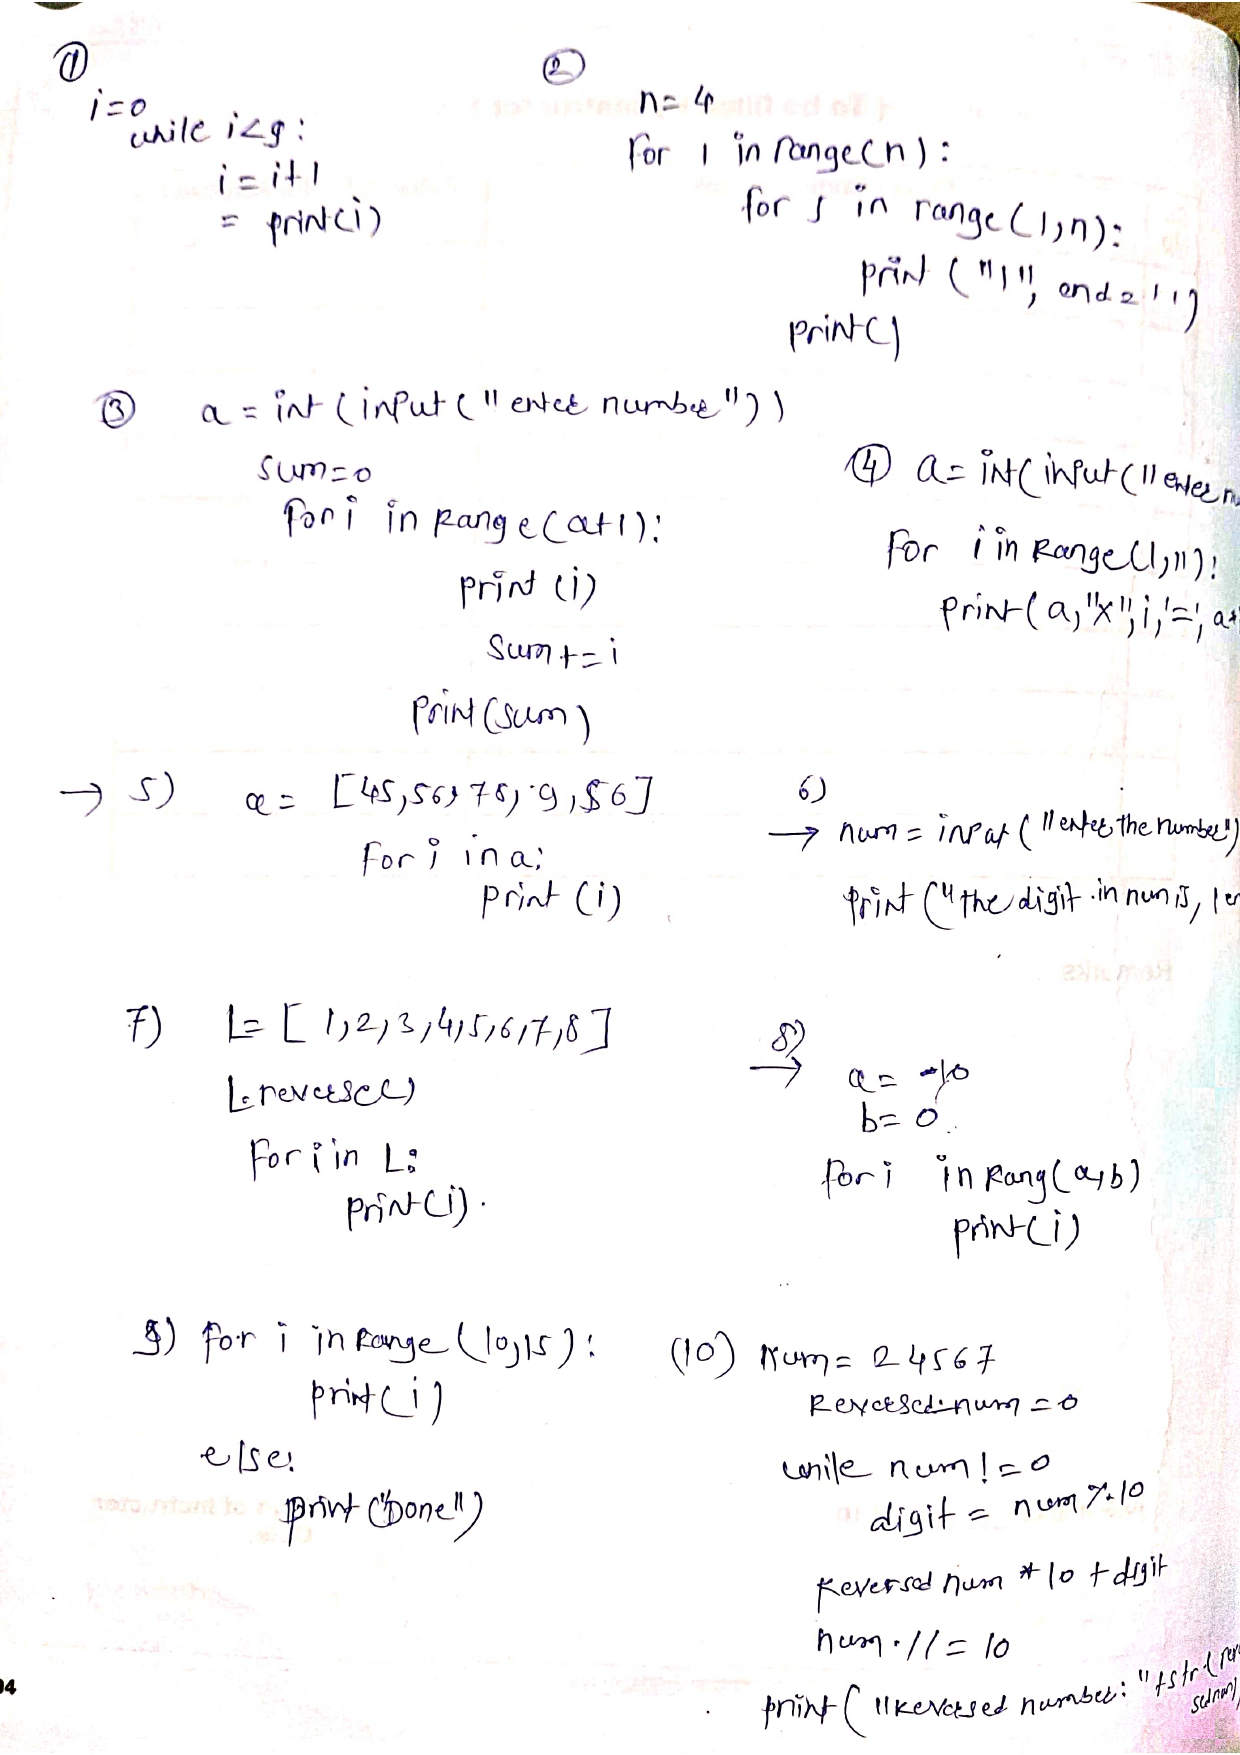 ①
i=0
while i<9:
i = i+1
= print(i)
②
n= 4
For i in range(n):
for j in range(1,n):
print ("1", end=' ')
print()
③ a = int (input ("enter number"))
sum=0
for i in range(a+1):
print (i)
sum+=i
print(sum)
④ a= int(input("enter
For i in range(1,11):
print(a,"x",i,'=',a*
→ 5) a= [45,56,78,9,56]
for i in a:
print (i)
6)
→ num = input ("enter the number")
print ("the digit in num is, len
7) L= [1,2,3,4,5,6,7,8]
L.reverse()
For i in L:
print(i).
8)
→ a= -10
b= 0
for i in rang(a,b)
print(i)
9) for i in range (10,15):
print(i)
else:
print("Done")
(10) Num= 24567
Reversed.num =0
while num!=0
digit = num %10
Reversed num * 10 + digit
num //= 10
print("Reversed number: "+str(rever
sednum)
04